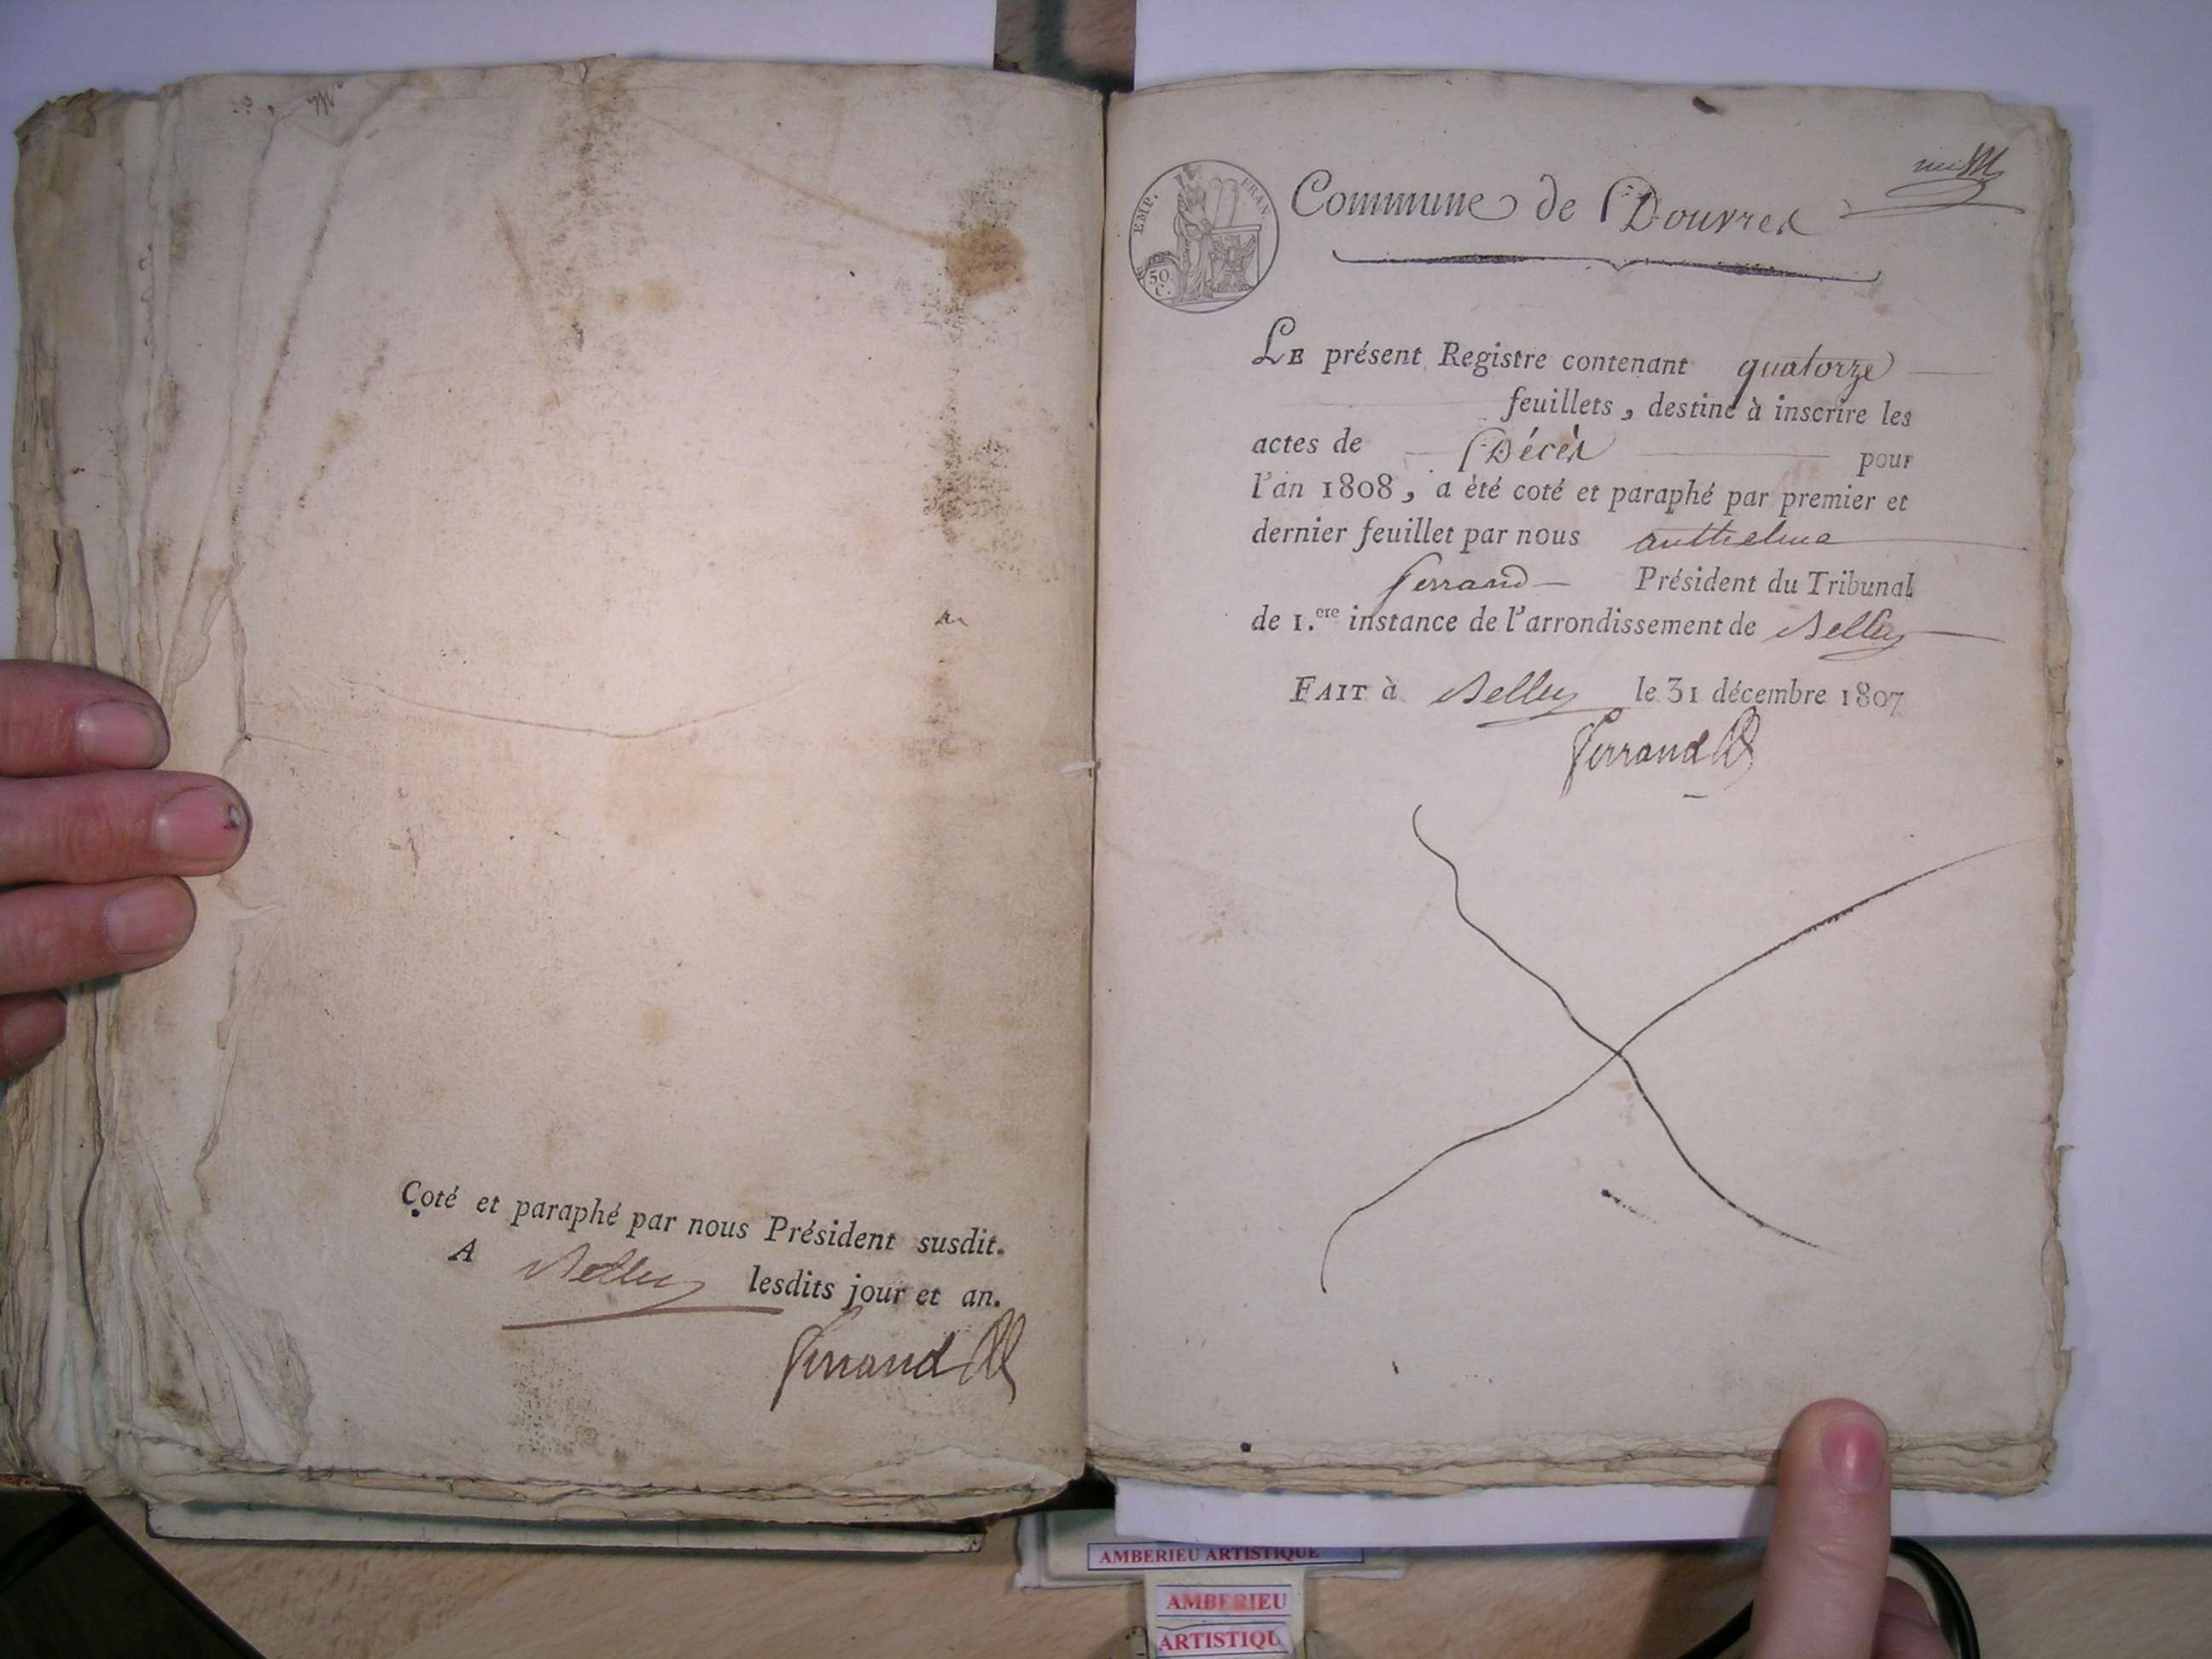 Coté et paraphé par nous Président susdit.
A Belley lesdits jour et an.
Ferrand
EMP. FRAN.
50
C.
Commune de Douvres
LE présent Registre contenant quatorze
feuillets, destiné à inscrire les
actes de Décès pour
l'an 1808, a èté coté et paraphé par premier et
dernier feuillet par nous anthelme
ferrand Président du Tribunal
de 1.ere instance de l'arrondissement de Belley
FAIT à Belley le 31 décembre 1807
Ferrand
AMBERIEU ARTISTIQUE
AMBERIEU
ARTISTIQU